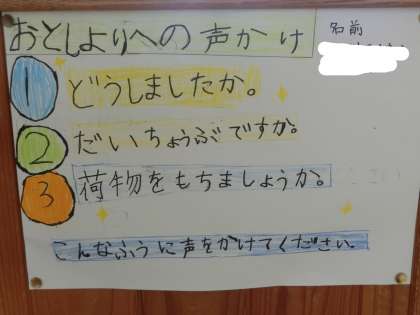 おとしよりへの声かけ
名前
1 どうしましたか。
2 だいちょうぶですか。
3 荷物をもちましょうか。
こんなふうに声をかけてください。